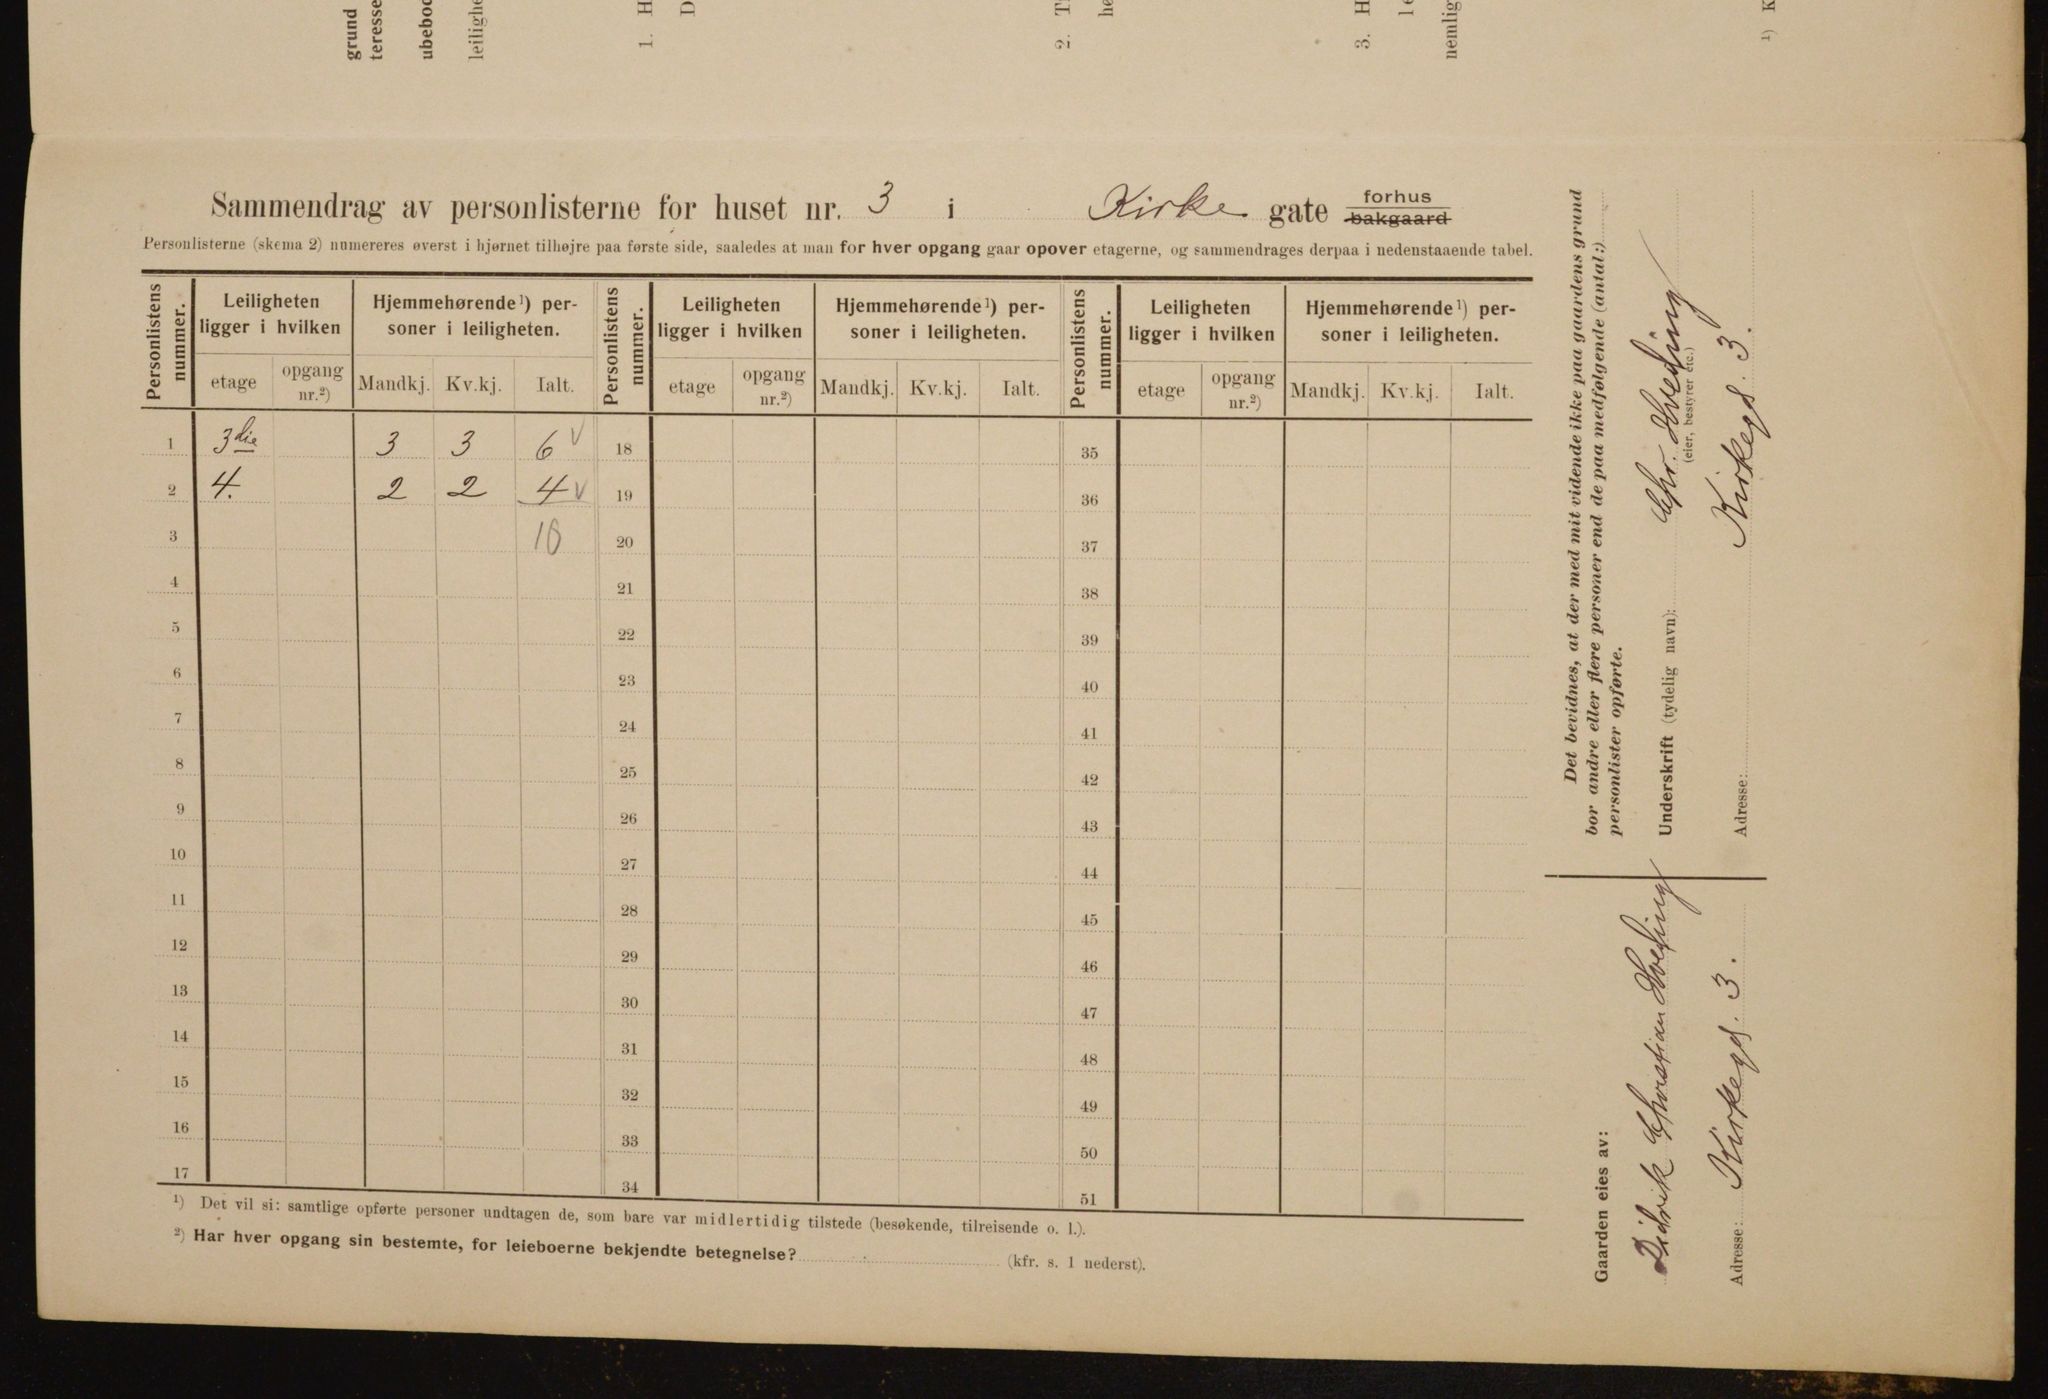 grund
teresse
ubeboe
leilighe
1. H
D
2. T
he
3. H
le
nemlig
¹) K
Sammendrag av personlisterne for huset nr. 3 i Kirke gate forhus ~~bakgaard~~
Personlisterne (skema 2) numereres øverst i hjørnet tilhøjre paa første side, saaledes at man for hver opgang gaar opover etagerne, og sammendrages derpaa i nedenstaaende tabel.
Personlistens nummer. Leiligheten ligger i hvilken Hjemmehørende¹) personer i leiligheten. Personlistens nummer. Leiligheten ligger i hvilken Hjemmehørende¹) personer i leiligheten. Personlistens nummer. Leiligheten ligger i hvilken Hjemmehørende¹) personer i leiligheten.
etage opgang nr.²) Mandkj. Kv.kj. Ialt. etage opgang nr.²) Mandkj. Kv.kj. Ialt. etage opgang nr.²) Mandkj. Kv.kj. Ialt.
1 3die 3 3 6 V 18 35
2 4. 2 2 4 V 19 36
3 10 20 37
4 21 38
5 22 39
6 23 40
7 24 41
8 25 42
9 26 43
10 27 44
11 28 45
12 29 46
13 30 47
14 31 48
15 32 49
16 33 50
17 34 51
¹) Det vil si: samtlige opførte personer undtagen de, som bare var midlertidig tilstede (besøkende, tilreisende o. l.).
²) Har hver opgang sin bestemte, for leieboerne bekjendte betegnelse? (kfr. s. 1 nederst).
Det bevidnes, at der med mit vidende ikke paa gaardens grund
bor andre eller flere personer end de paa medfølgende (antal:)
personlister opførte.
Underskrift (tydelig navn): Chr. Hveding
(eier, bestyrer etc.)
Adresse: Kirkegd. 3.
Gaarden eies av:
Didrik Christian Hveding
Adresse: Kirkegd. 3.